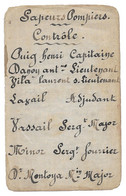 Sapeurs Pompiers.
Contrôle.
Puig Henri Capitaine
Lieutenant
Vila Laurent S. Lieutenant
Lavail Adjudant
Vassail Sergt Major
Minoz Sergt fourrier
Dr Montoya Mn Major